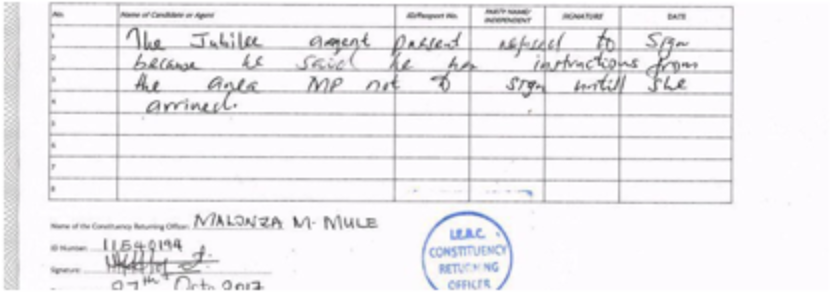 No. Name of Candidate or Agent ID/Passport No. PARTY NAME/ INDEPENDENT SIGNATURE DATE
1 The Jubilee argent present refused to Sign
2 because he said he has instructions from
3 the area MP not to sign untill she
4 arrived.
5
6
7
8
Name of the Constituency Returning Officer: MALONZA M. MULE
ID Number: 11540194
Signature:
27th Oct 2017
I.E.B.C.
CONSTITUENCY
RETURNING
OFFICER